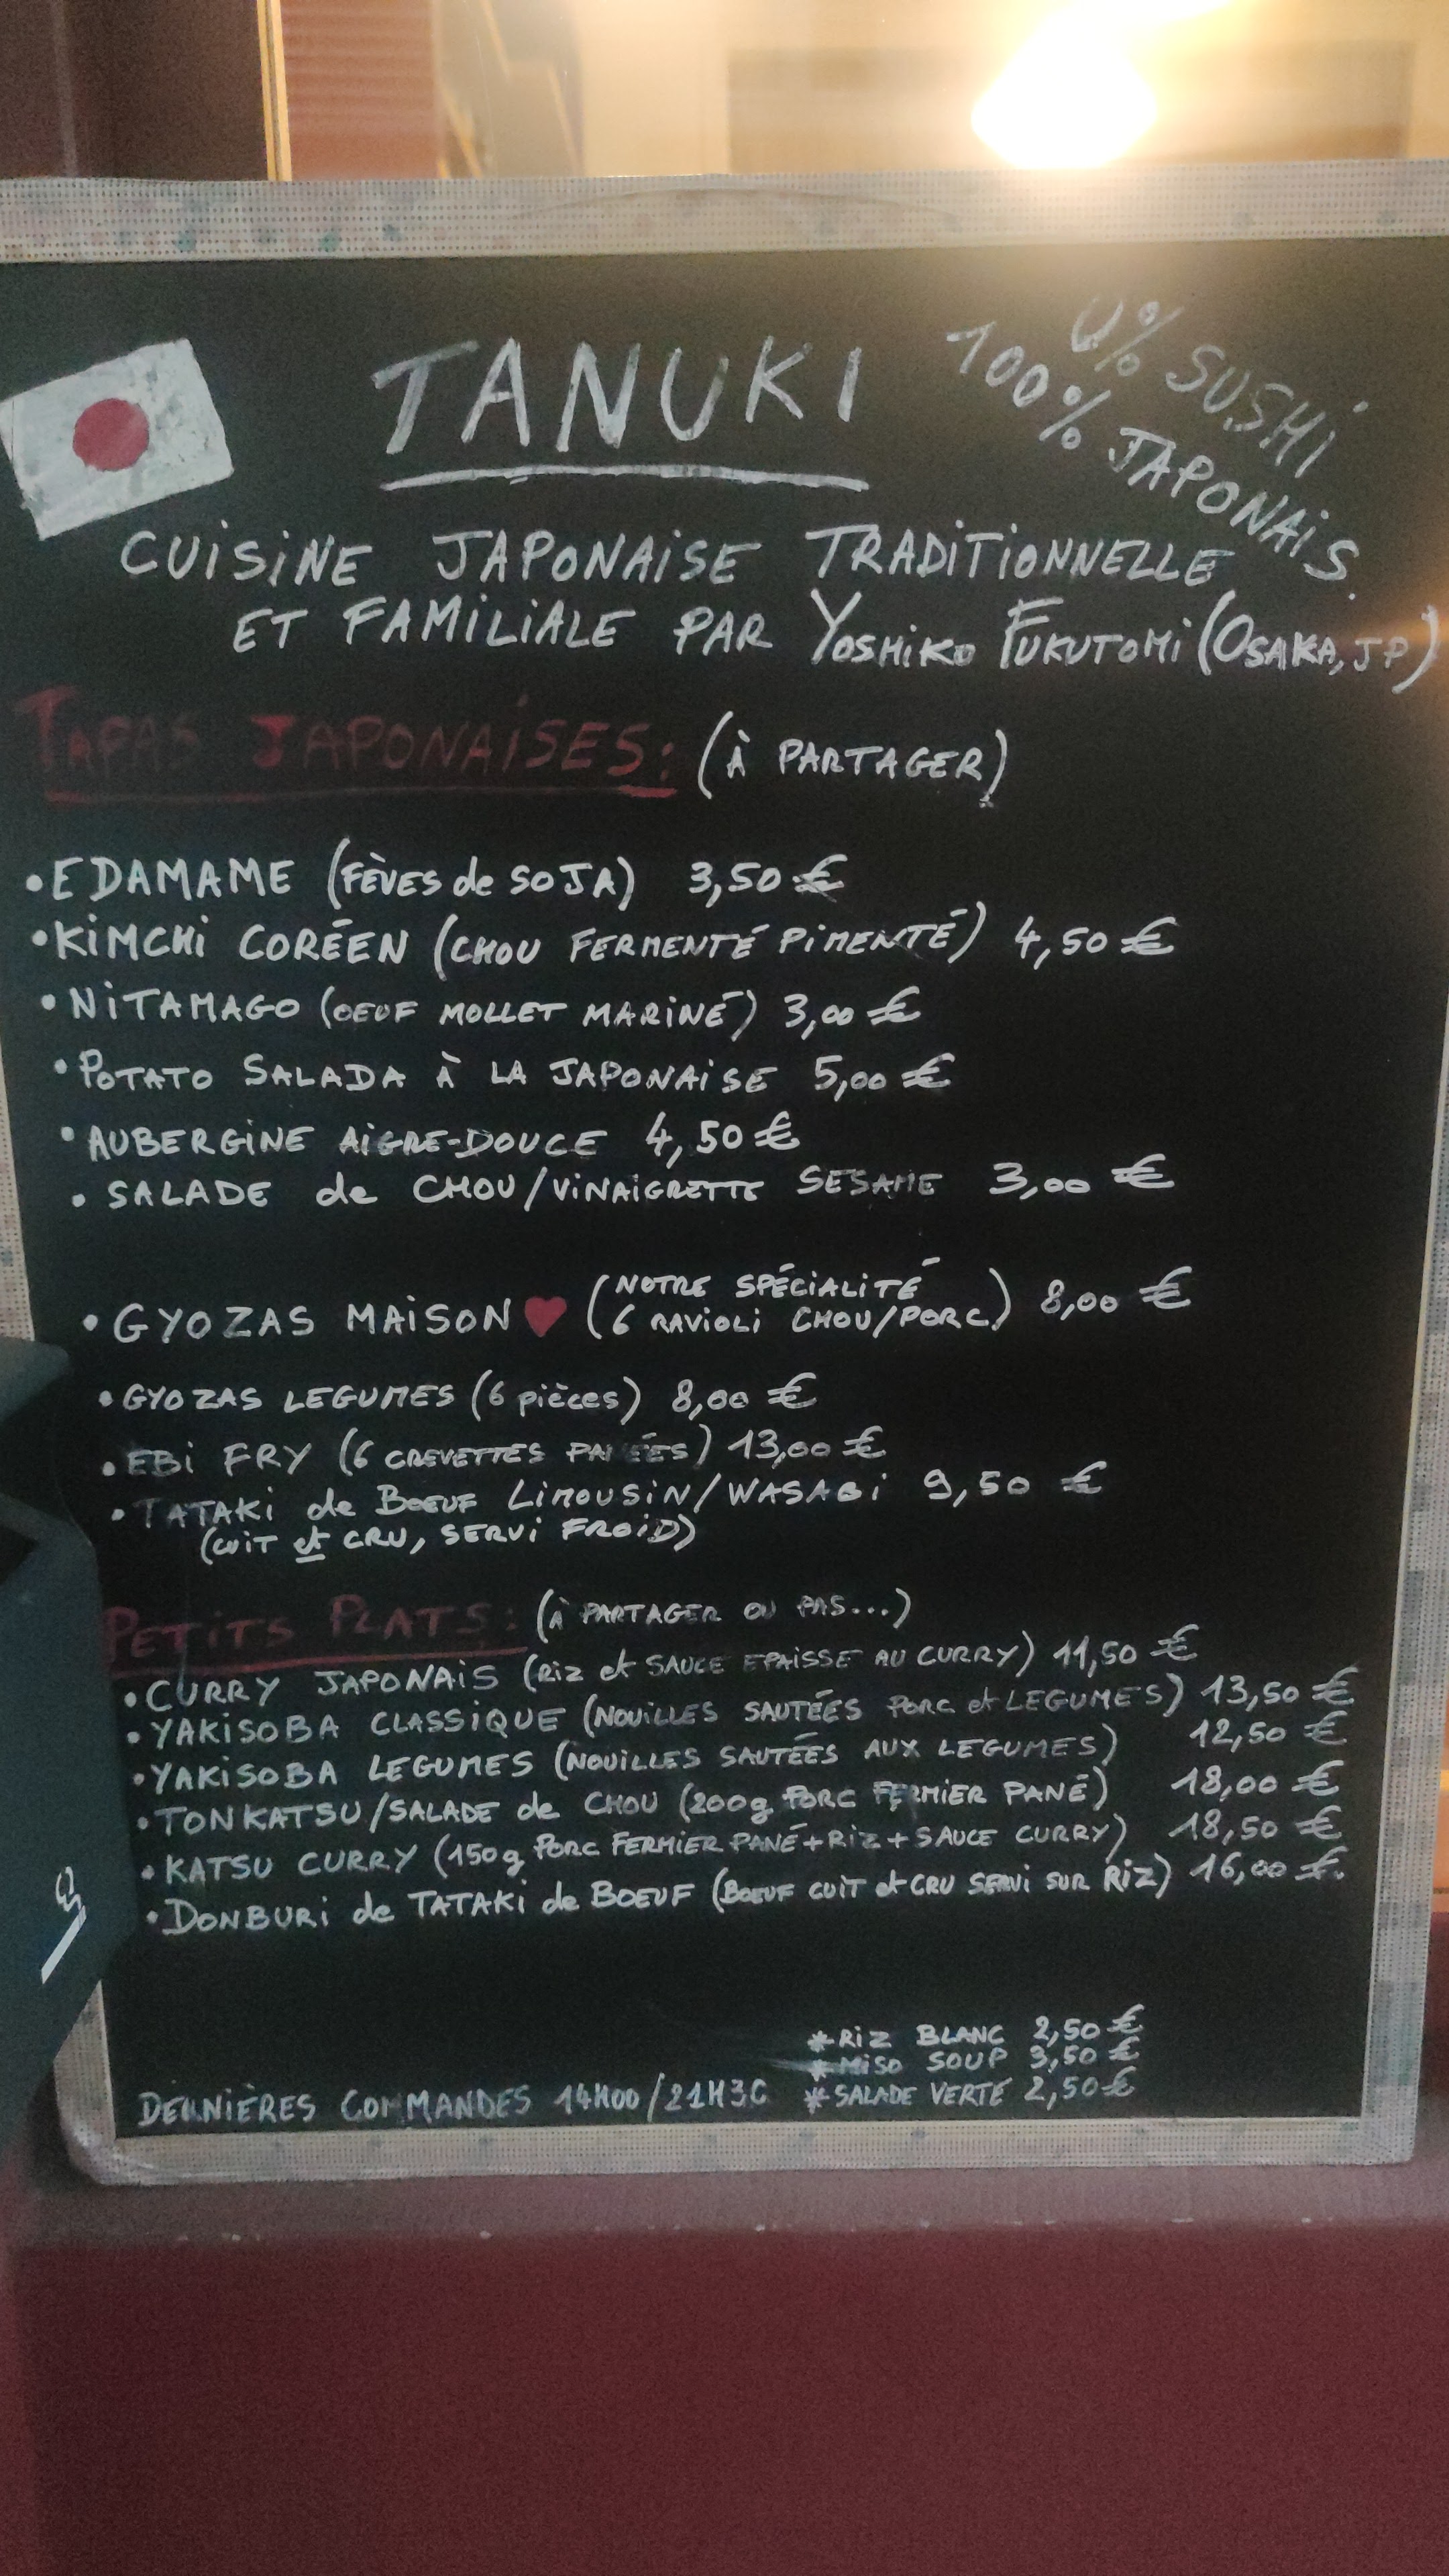 0% SUSHI
100% JAPONAIS.
TANUKI
CUISINE JAPONAISE TRADITIONNELLE
ET FAMILIALE PAR YOSHIKO FUKUTOMI (OSAKA, JP)
TAPAS JAPONAISES: (À PARTAGER)
•EDAMAME (FÈVES de SOJA) 3,50 €
•KIMCHI CORÉEN (CHOU FERMENTÉ PIMENTÉ) 4,50 €
•NITAMAGO (OEUF MOLLET MARINÉ) 3,00 €
•POTATO SALADA À LA JAPONAISE 5,00 €
•AUBERGINE AIGRE-DOUCE 4,50 €
•SALADE de CHOU/VINAIGRETTE SESAME 3,00 €
•GYOZAS MAISON ♥ (NOTRE SPÉCIALITÉ
6 RAVIOLI CHOU/PORC) 8,00 €
•GYOZAS LEGUMES (6 pièces) 8,00 €
•EBI FRY (6 CREVETTES PANÉES) 13,00 €
•TATAKI de BOEUF LIMOUSIN/WASABI 9,50 €
(CUIT et CRU, SERVI FROID)
PETITS PLATS: (À PARTAGER OU PAS...)
•CURRY JAPONAIS (RIZ et SAUCE EPAISSE AU CURRY) 11,50 €
•YAKISOBA CLASSIQUE (NOUILLES SAUTÉES PORC et LEGUMES) 13,50 €
•YAKISOBA LEGUMES (NOUILLES SAUTÉES AUX LEGUMES) 12,50 €
•TONKATSU/SALADE de CHOU (200g PORC FERMIER PANÉ) 18,00 €
•KATSU CURRY (150g PORC FERMIER PANÉ+RIZ+SAUCE CURRY) 18,50 €
•DONBURI de TATAKI de BOEUF (BOEUF CUIT et CRU SERVI SUR RIZ) 16,00 €.
*RIZ BLANC 2,50 €
*MISO SOUP 3,50 €
*SALADE VERTE 2,50 €
DERNIÈRES COMMANDES 14H00/21H30